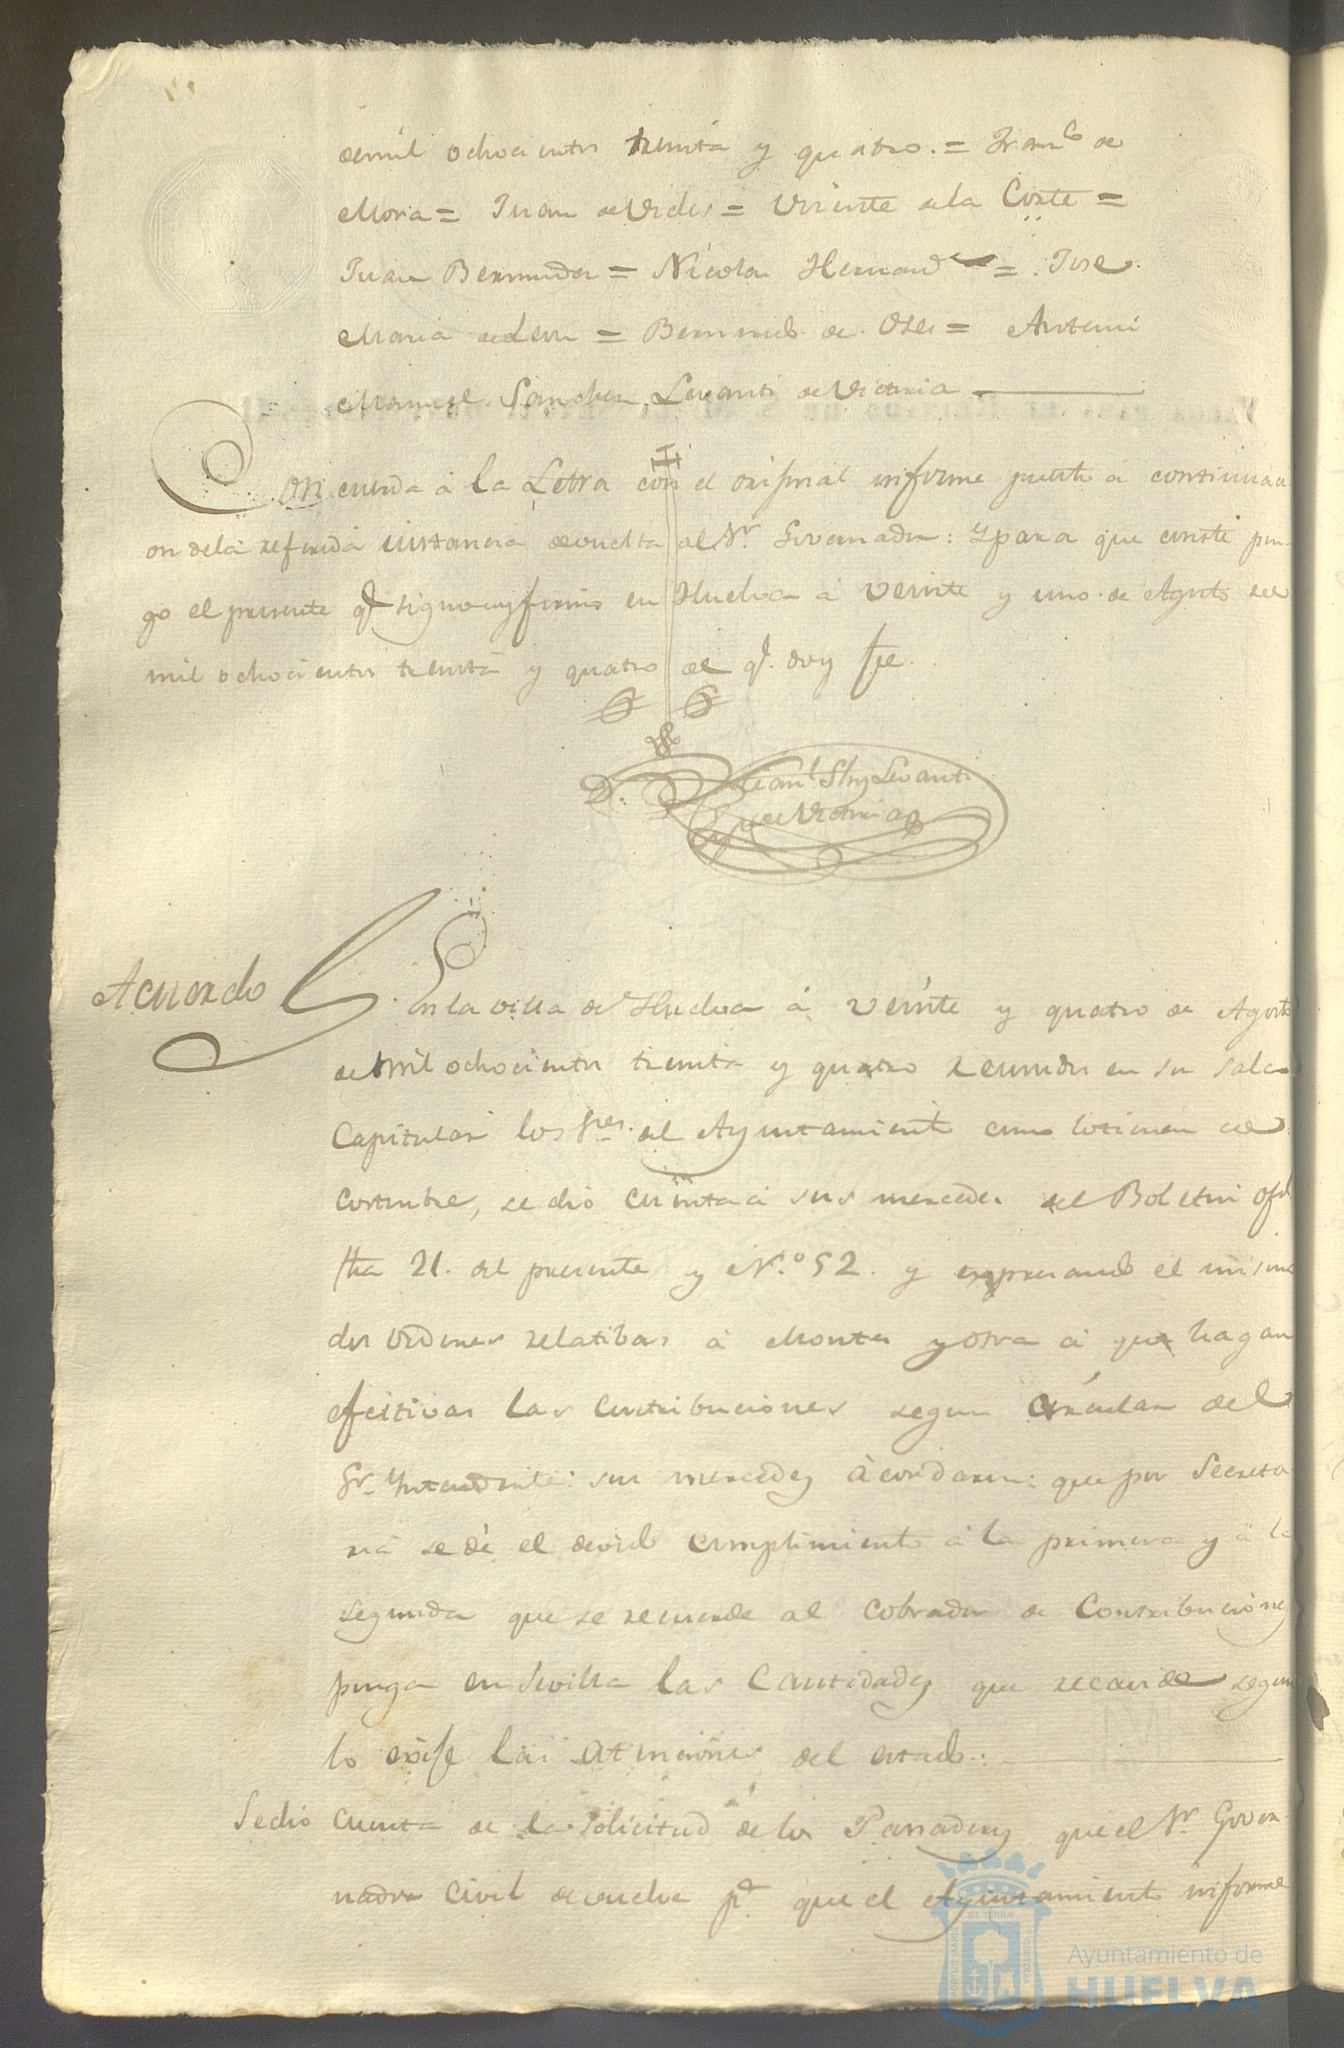 de mil ochocientos treinta y quatro. = Franco de
Mora = Juan de Vides = Vicente de la Corte =
Juan Bermudez = Nicolas Hernandez = Jose
Maria de Leon = Bernardo de = Antonio
Manuel Sanchez Levanti de Victoria
Concuerda a la Letra con el original informe puesto a continuaci
on de la referida instancia devuelta al Sr. Governador: Y para que conste pon
go el presente q.e signo y firmo en Huelva a veinte y uno de Agosto de
mil ochocientos treinta y quatro de q.e doy fee.
Manl. Shz Levanti
de Victoria
Acuerdo
En la villa de Huelva a veinte y quatro de Agosto
de mil ochocientos treinta y quatro reunidos en su sala
Capitular los Sres. del Ayuntamiento como lo tienen de
costumbre, se dio cuenta a sus mercedes del Boletin ofl
fha 21. del presente y N.o 52. y expresando el mismo
dos ordenes relatibas a Montes y otra a que hagan
efectivas las contribuciones segun circular del
Sr. Yntendente: sus mercedes acordaron: que por Secreta
ria se dé el devido cumplimiento a la primera y a la
segunda que se recuerde al Cobrador de Contribuciones
ponga en Sevilla las Cantidades que recaude segun
lo exige las atenciones del estado.
Se dio cuenta de la solicitud de los Panaderos que el Sr. Gover
nador Civil devuelve pa. que el Ayuntamiento informe
PORTUS MARIS
ET TERRAE
CUSTODIA
Ayuntamiento de
HUELVA